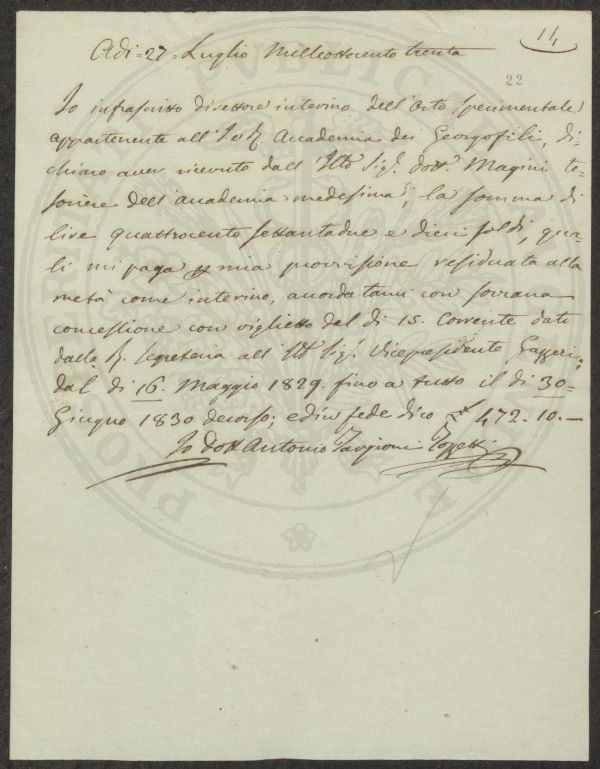 14
Adi = 27 = Luglio Milleottocento trenta
22
Io infrascritto direttore interino dell'Orto Sperimentale
appartenente all' I e R Accademia dei Georgofili, di-
chiaro aver ricevuto dall' Illo Sig.r dott.r Magini te-
soriere dell'accademia medesima, la somma di
lire quattrocento settantadue e dieci soldi, qua-
li mi paga p mia provvisione residuata alla
metà come interino, accordatami con sovrana
concessione con viglietto del di 15. Corrente dato
dalla R. Segreteria all' Ill Sig.r Vicepresidente Gazzeri,
dal di 16. Maggio 1829. fino a tutto il di 30=
Giugno 1830 decorso; ed in fede dico 472.10.—
Io Dott Antonio Targioni Tozzetti